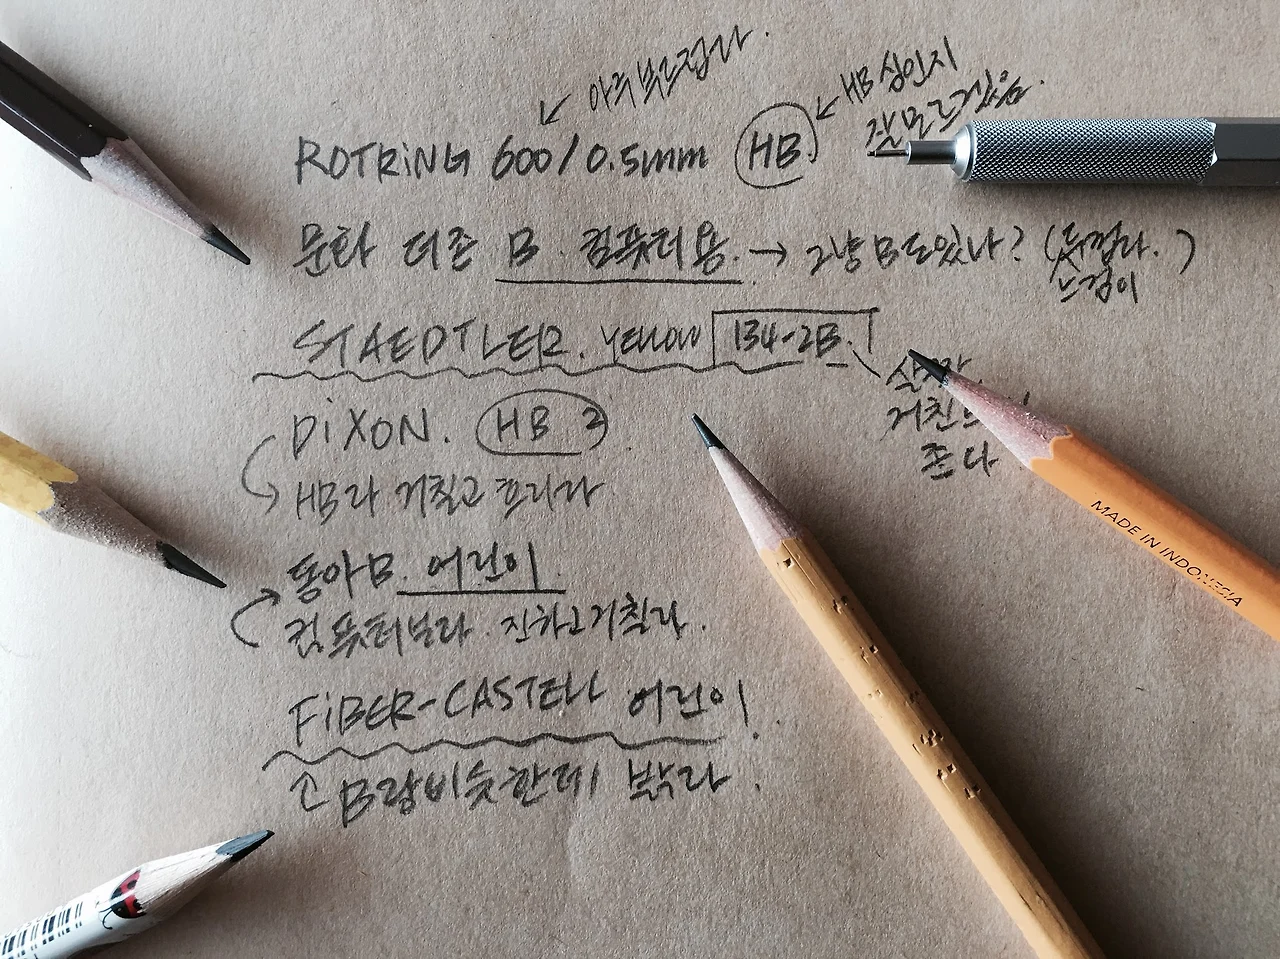 아주 부드럽다.
HB 심인지
잘 모르겠음.
ROTRING 600/0.5mm HB.
문화 더존 B 컴퓨터용. → 그냥 B도 있나? (두껍다.)
느낌이
STAEDTLER. YELLOW 134-2B.
거친
좋다
DIXON. HB 2
HB라 거칠고 흐리다
동아 B. 어린이.
컴퓨터보다 진하고 거칠다.
FIBER-CASTELL 어린이.
B랑 비슷한데 밝다.
MADE IN INDONESIA